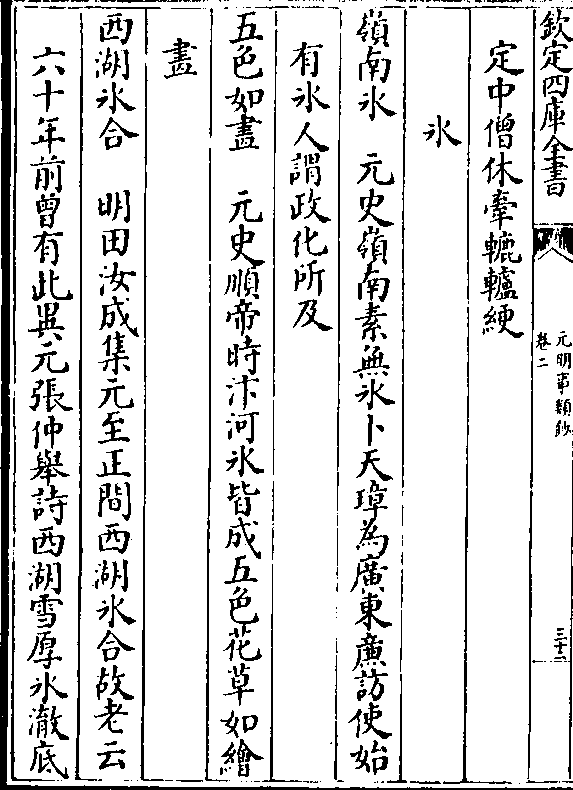 欽定四庫全書
元明事類鈔
卷二
三十二
定中僧休牽轆轤綆
氷
嶺南氷　元史嶺南素無氷卜天璋為廣東廉訪使始
有氷人謂政化所及
五色如畫　元史順帝時汴河氷皆成五色花草如繪
畫
西湖氷合　明田汝成集元至正間西湖氷合故老云
六十年前曾有此異元張仲舉詩西湖雪厚氷澈底